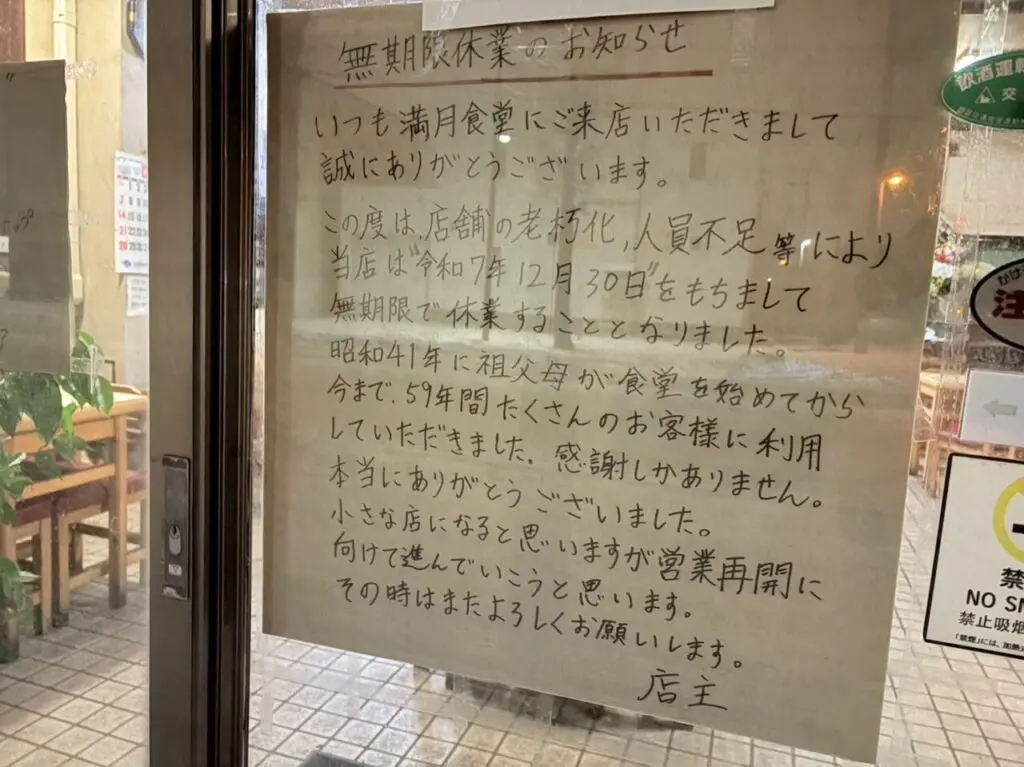 無期限休業のお知らせ
いつも満月食堂にご来店いただきまして
誠にありがとうございます。
この度は、店舗の老朽化,人員不足等により
当店は"令和7年12月30日"をもちまして
無期限で休業することとなりました。
昭和41年に祖父母が食堂を始めてから
今まで、59年間たくさんのお客様に利用
していただきました。感謝しかありません。
本当にありがとうございました。
小さな店になると思いますが営業再開に
向けて進んでいこうと思います。
その時はまたよろしくお願いします。
店主
飲酒運転
交
かけ
注
禁
NO SM
禁止吸烟
「禁煙」には、加熱